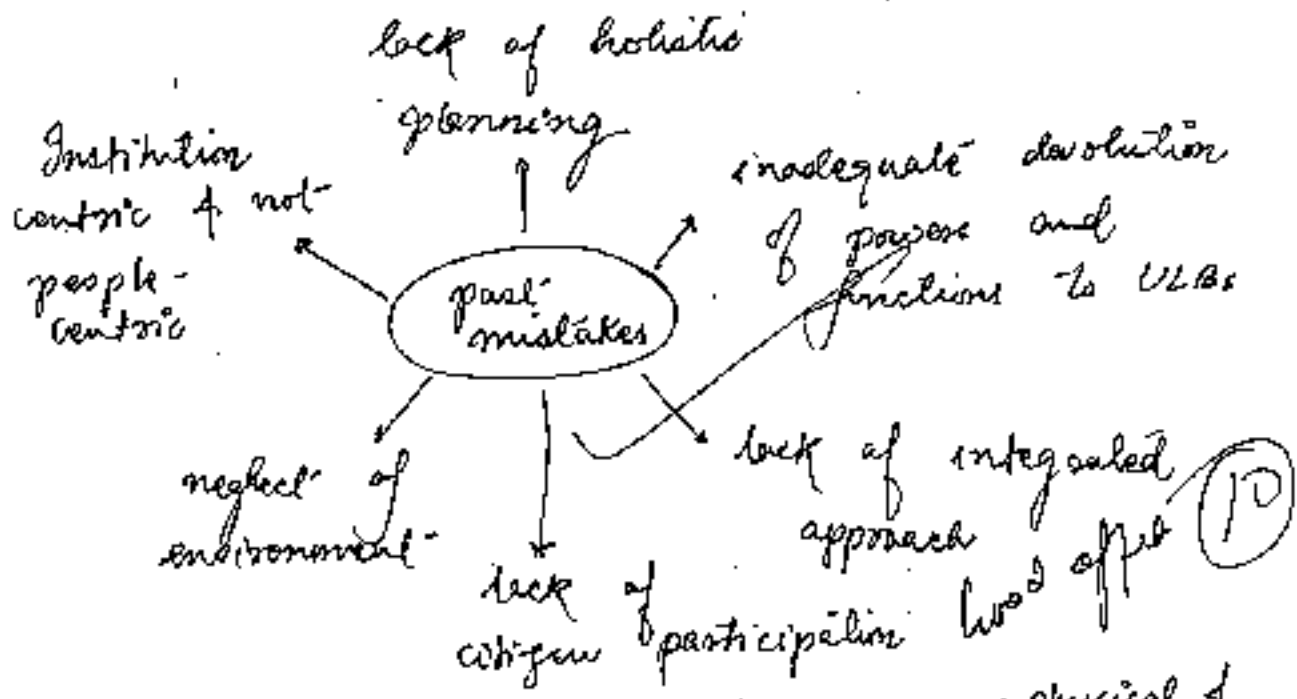 lack of holistic
planning
Institution
centric & not
people-
centric
inadequate devolution
of powers and
functions to ULBs
past
mistakes
neglect of
environment
lack of
citizen participation
lack of integrated
approach
Good
10
physical &